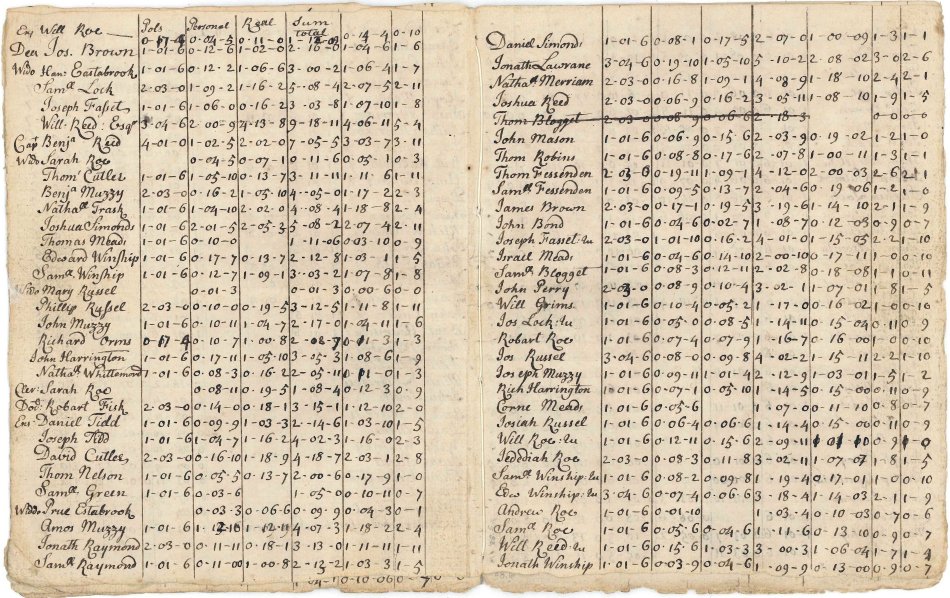 Pols Personal Real Sum total
Ens Will Roe 0-17-4 0-04-5 0-11-0 0-14-4 0-10
Dea Jos. Brown 1-01-6 0-12-6 1-02-0 2-16-0 1-04-6 1-6
Wido Han: Eastabrook 1-01-6 0-12-2 1-06-6 3-00-2 1-06-4 1-7
Samll Lock 2-03-0 1-09-2 1-16-2 5-08-4 2-07-5 2-11
Joseph Fasset 1-01-6 1-06-0 0-16-2 3-03-8 1-07-10 1-8
Will Reed: Esqr 3-04-6 2-00-9 4-13-8 9-18-11 4-06-11 5-4
Cap Benja Reed 4-01-0 1-02-5 2-02-0 7-05-5 3-03-7 3-11
Wido Sarah Roe 0-04-5 0-07-1 0-11-6 0-05-1 0-3
Thom Cutler 1-01-6 1-05-10 0-13-7 3-11-11 1-11-6 1-11
Benja Muzzy 2-03-0 0-16-2 1-05-10 4-05-0 1-17-2 2-3
Nathall Trask 1-01-6 1-04-10 2-02-0 4-08-4 1-18-8 2-4
Joshua Simonds 1-01-6 2-01-5 2-05-3 5-08-2 2-07-4 2-11
Thomas Meads 1-01-6 0-10-0 1-11-06 0-03-10 0-9
Edward Winship 1-01-6 0-17-7 0-13-7 2-12-8 1-03-1 1-5
Samll Winship 1-01-6 0-12-7 1-09-1 3-03-2 1-07-8 1-8
Wido Mary Russel 0-01-3 0-01-3 0-00-6 0-0
Phillip Russel 2-03-0 0-10-0 0-19-5 3-12-5 1-11-8 1-11
John Muzzy 1-01-6 0-10-11 1-04-7 2-17-0 1-04-11 1-6
Richard Orms 0-17-4 0-10-7 1-00-8 2-08-7 1-3
John Harrington 1-01-6 0-17-11 1-05-10 3-25-3 1-08-6 1-9
Nathall Whittemore 1-01-6 0-08-3 0-16-2 2-05-11 1-3
Cler: Sarah Roe 0-08-11 0-19-5 1-08-4 0-12-3 0-9
Doc: Robart Fisk 2-03-0 0-14-0 0-18-1 3-15-1 1-12-10 2-0
Ens Daniel Tidd 1-01-6 0-09-9 1-03-3 2-14-6 1-03-10 1-5
Joseph Tidd 1-01-6 1-04-7 1-16-2 4-02-3 1-16-0 2-3
David Cutler 2-03-0 0-16-10 1-18-9 4-18-7 2-03-1 2-8
Thom Nelson 1-01-6 0-05-5 0-13-7 2-00-6 0-17-9 1-0
Samll Green 1-01-6 0-03-6 1-05-0 0-10-11 0-7
Wido Prue Estabrook 0-03-3 0-06-6 0-09-9 0-04-3 0-1
Amos Muzzy 1-01-6 4-07-3 1-18-2 2-4
Jonath Raymond 2-03-0 0-11-11 0-18-1 3-13-0 1-11-11 1-11
Samll Raymond 1-01-6 0-11-00 1-00-8 2-13-2 1-03-3 1-5
Daniel Simonds 1-01-6 0-08-1 0-17-5 2-07-01 1-00-09 1-3 1-1
Jonath Lawrane 3-04-6 0-19-10 1-05-10 5-10-2 2-08-02 3-0 2-6
Nathall Merriam 2-03-0 0-16-8 1-09-1 4-08-9 1-18-10 2-4 2-1
Joshua Reed 2-03-0 0-06-9 0-16-2 3-05-11 1-08-10 1-9 1-5
Thom Blogget 2-03-0 0-08-9 0-06-6 2-18-3 0-0 0-0
John Mason 1-01-6 0-06-9 0-15-6 2-03-9 0-19-02 1-2 1-0
Thom Robins 1-01-6 0-08-8 0-17-6 2-07-8 1-00-11 1-3 1-1
Thom Fessenden 2-03-6 0-19-11 1-09-1 4-12-0 2-00-03 2-6 2-1
Samll Fessenden 1-01-6 0-09-5 0-13-7 2-04-6 0-19-06 1-2 1-0
James Brown 2-03-0 0-17-1 0-19-5 3-19-6 1-14-10 2-1 1-9
John Bond 1-01-6 0-04-6 0-02-7 1-08-7 0-12-08 0-9 0-7
Joseph Fasset Ju 2-03-0 1-01-10 0-16-2 4-01-0 1-15-05 2-2 1-10
Israel Meads 1-01-6 0-04-6 0-14-10 2-00-10 0-17-11 1-0 0-11
Samll Blogget 1-01-6 0-08-3 0-12-11 2-02-8 0-18-08 1-1 0-11
John Perry 2-03-0 0-08-9 0-10-4 3-02-1 1-07-01 1-8 1-5
Will Grims 1-01-6 0-10-4 0-05-2 1-17-0 0-16-02 1-0 0-10
Jos Lock: Ju 1-01-6 0-05-0 0-08-5 1-14-11 0-15-04 0-11 0-9
Robart Roe 1-01-6 0-07-4 0-07-9 1-16-7 0-16-00 1-0 0-10
Jos Russel 3-04-6 0-08-0 0-09-8 4-02-2 1-15-11 2-2 1-10
Joseph Muzzy 1-01-6 0-09-11 1-01-4 2-12-9 1-03-01 1-5 1-2
Rich Harrington 1-01-6 0-07-1 0-05-10 1-14-5 0-15-00 0-11 0-9
Corne Meads 1-01-6 0-05-6 1-07-0 0-11-10 0-8 0-7
Josiah Russel 1-01-6 0-06-4 0-06-6 1-14-4 0-15-00 0-11 0-9
Will Roe: Ju 1-01-6 0-12-11 0-15-6 2-09-11
Jedediah Roe 2-03-0 0-08-3 0-11-8 3-02-11 1-07-07 1-8 1-5
Samll Winship: Ju 1-01-6 0-08-2 0-09-8 1-19-4 0-17-01 1-0 0-10
Edw Winship: Ju 3-04-6 0-07-4 0-06-6 3-18-4 1-14-03 2-1 1-9
Andrew Roe 1-01-6 0-01-10 1-03-4 0-10-03 0-7 0-6
Samll Roe 1-01-6 0-05-6 0-04-6 1-11-6 0-13-09 0-9
Will Reed: Ju 1-01-6 0-15-6 1-03-3 3-00-3 1-06-04 1-7 1-4
Jonath Winship 1-01-6 0-03-9 0-04-6 1-09-9 0-13-00 0-9 0-7